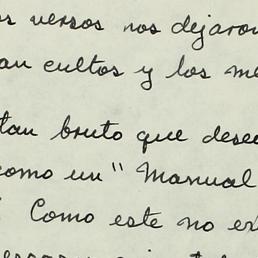 os versos nos dejaron
an cultos y los me
tan bruto que dese
como un "Manual
Como este no ex